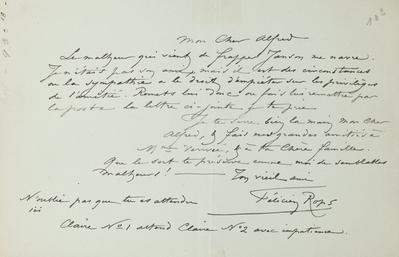 Mon Cher Alfred
Le malheur qui vient de frapper Janson me navre.
Je n'étais pas son ami, mais il est des circonstances
où la sympathie a le droit d'empiéter sur les privilèges
de l'amitié. Remets lui donc ou fais lui remettre par
la poste la lettre ci-jointe je te prie
Je te serre bien la main, mon cher
Alfred, & fais mes grandes amitiés à
Mme & à ta Chère famille.
Que le sort te préserve comme moi de semblables
malheurs! Ton vieil ami
Félicien Rops
N'oublie pas que tu es attendu
ici
Claire No 1 attend Claire No 2 avec impatience.